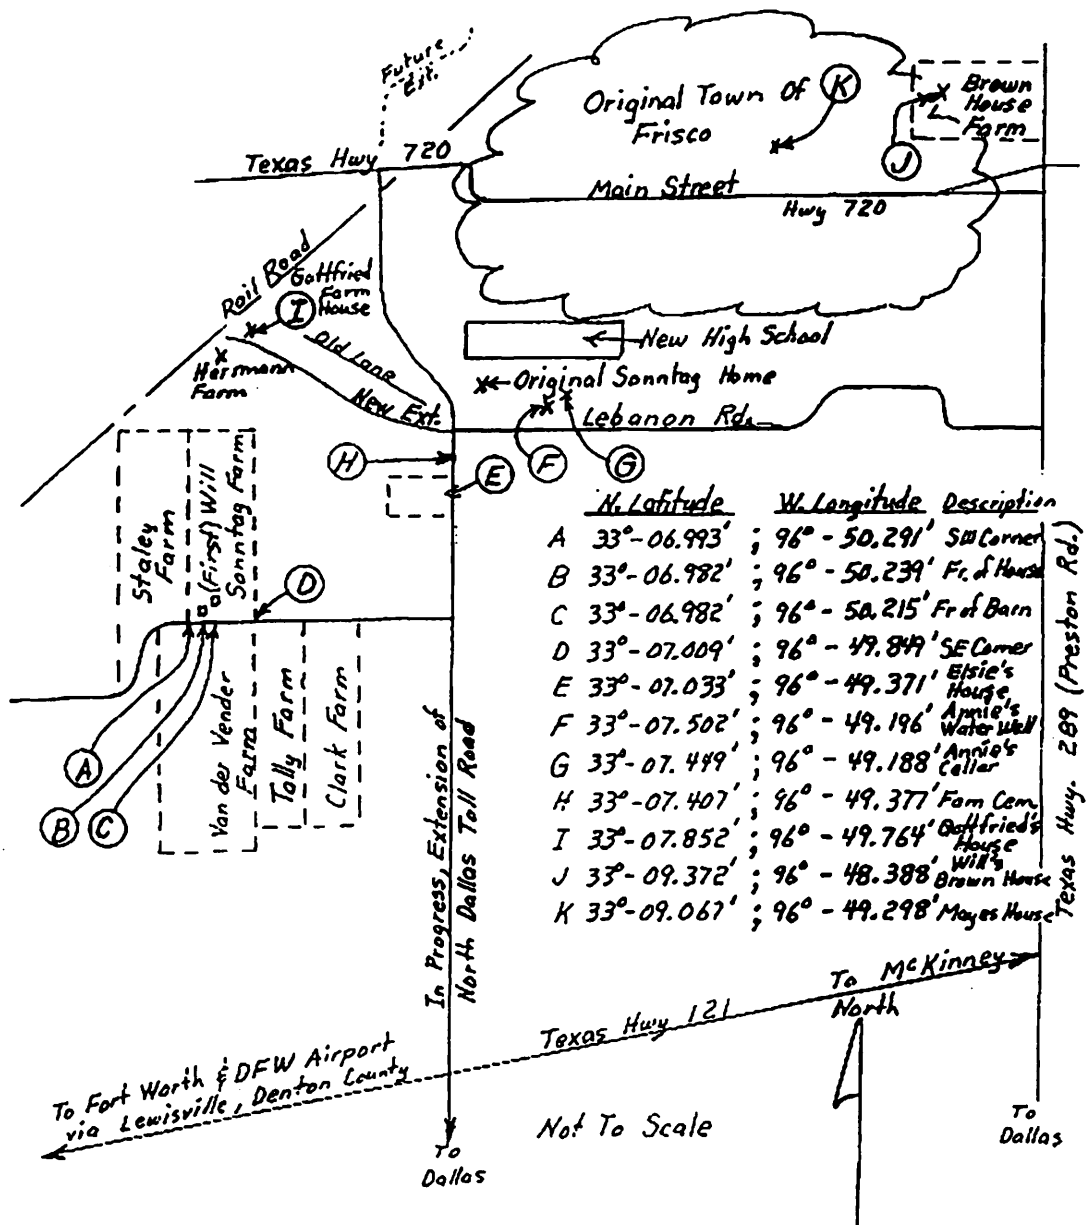 Future
Ext.
Original Town Of
Frisco
K
Brown
House
Farm
J
Texas Hwy 720
Main Street
Hwy 720
Rail Road
Gottfried
Farm
House
I
Old Lane
New Ext.
Hersmann
Farm
New High School
Original Sonntag Home
Lebanon Rd.
H
E
F
G
Staley
Farm
(First) Will
Sonntag Farm
D
A
B
C
Van der Vender
Farm
Tally Farm
Clark Farm
In Progress, Extension of
North Dallas Toll Road
N. Latitude W. Longitude Description
A 33°-06.993' ; 96°-50.291' SW Corner
B 33°-06.982' ; 96°-50.239' Fr. of House
C 33°-06.982' ; 96°-50.215' Fr of Barn
D 33°-07.009' ; 96°-49.849' SE Corner
E 33°-07.033' ; 96°-49.371' Elsie's House
F 33°-07.502' ; 96°-49.196' Annie's Water Well
G 33°-07.449' ; 96°-49.188' Annie's Cellar
H 33°-07.407' ; 96°-49.377' Fam Cem.
I 33°-07.852' ; 96°-49.764' Gottfried's House
J 33°-09.372' ; 96°-48.388' Will's Brown House
K 33°-09.067' ; 96°-49.298' Mayes House
Texas Hwy. 289 (Preston Rd.)
To McKinney
North
Texas Hwy 121
To Fort Worth & DFW Airport
via Lewisville, Denton County
Not To Scale
To
Dallas
To
Dallas